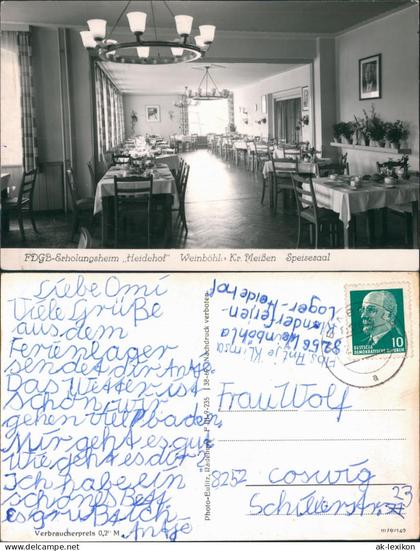 FDGB-Erholungsheim „Heidehof“ Weinböhla Kr. Meißen Speisesaal
Liebe Omi
Viele Grüße
aus dem
Ferienlager
sendet dir Antje.
Das Wetter ist
schön wir
gehen viel baden.
Mir geht es gut
wie geht es dir
Ich habe ein
schönes Bett
es grüßt dich
Antje
Verbraucherpreis 0,2 M
Photo-Eulitz,
Nachdruck verboten
Abs Antje Klimsa
8256 Weinböhla
Kinderferien-
Lager-Heidehof
DEUTSCHE
DEMOKRATISCHE
10
a
Frau Wolf
8252 Coswig
Schillerstr. 23
© www.ak-lexikon.de
ak-lexikon.de